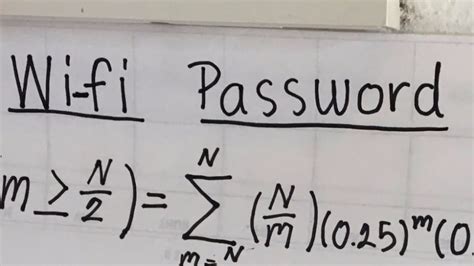 Wi-fi Password
m ≥ N/2) = ∑_{m=N}^{N} (N/m)(0.25)^m (0.